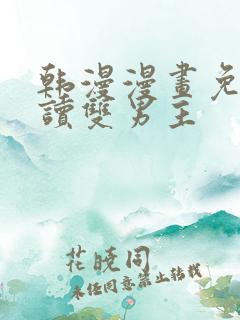 韩漫漫畫免
讀雙男主
花晓同
未经同意禁止转载